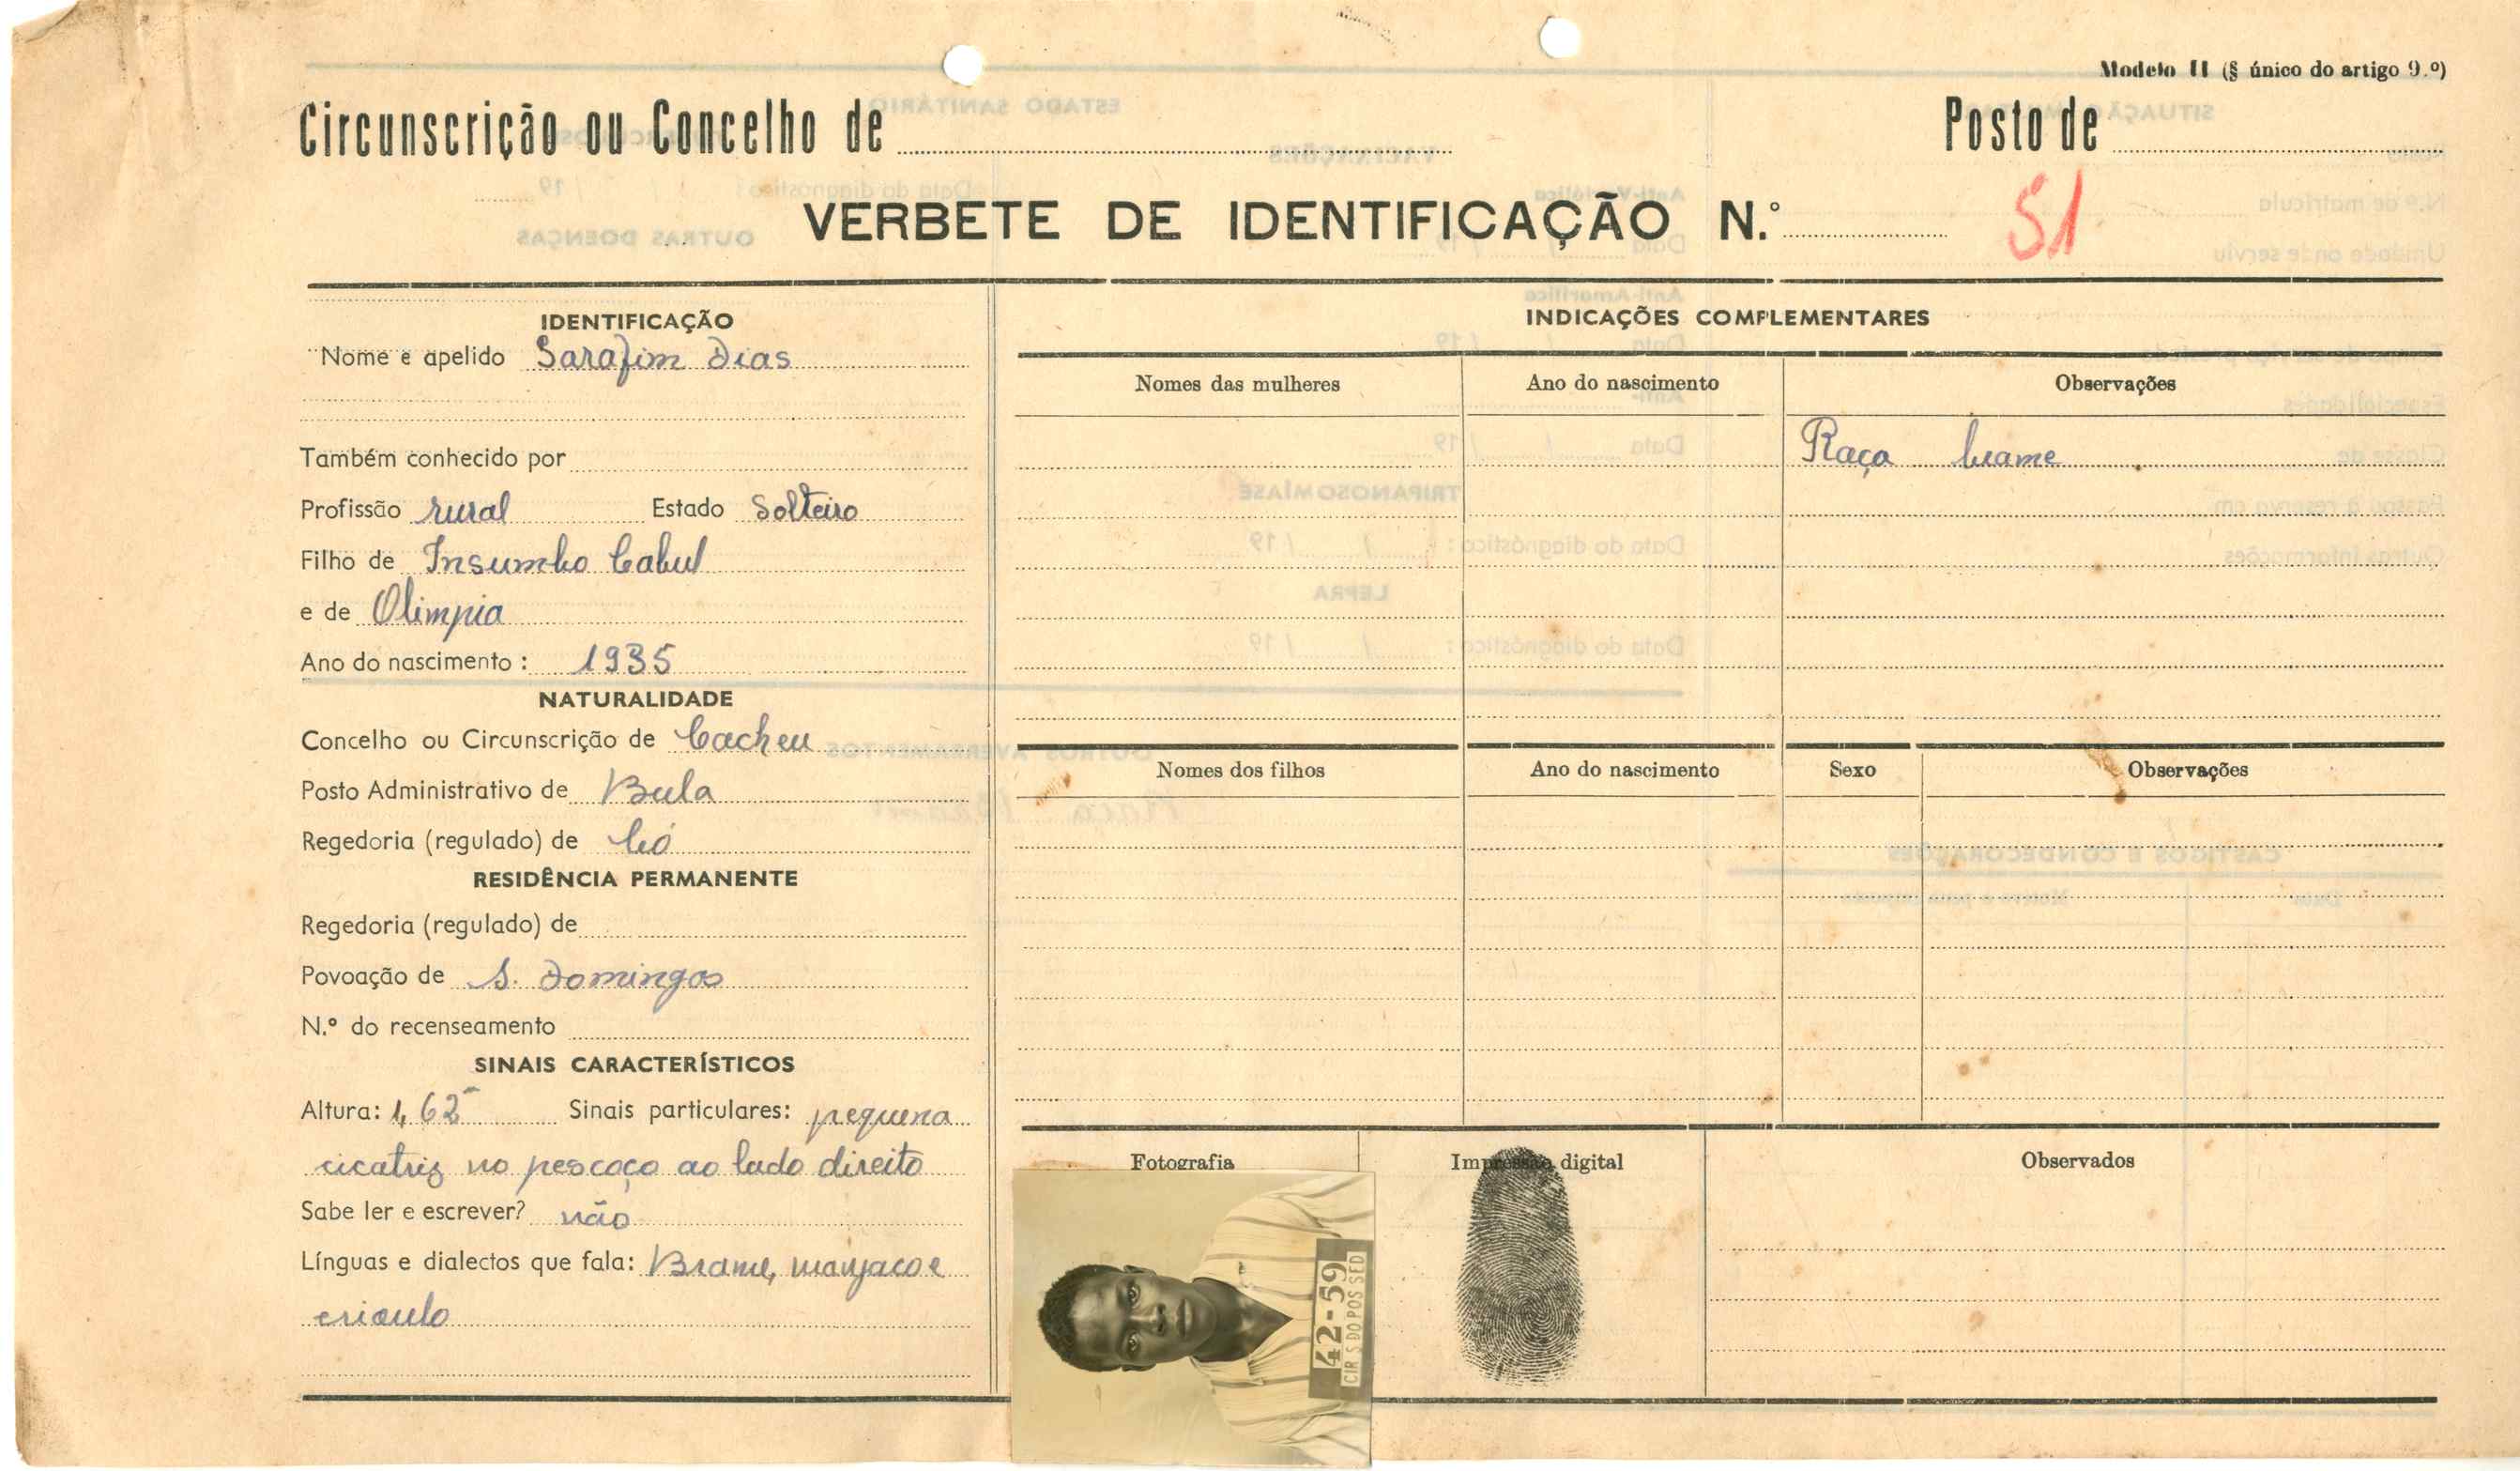 Modelo II (§ único do artigo 9.º)
Circunscrição ou Concelho de
Posto de
VERBETE DE IDENTIFICAÇÃO N.º
51
IDENTIFICAÇÃO
Nome e apelido Sarafim Dias
Também conhecido por
Profissão rural Estado Solteiro
Filho de Insumbo Cabul
e de Olimpia
Ano do nascimento : 1935
NATURALIDADE
Concelho ou Circunscrição de Cacheu
Posto Administrativo de Bula
Regedoria (regulado) de Có
RESIDÊNCIA PERMANENTE
Regedoria (regulado) de
Povoação de S. Domingos
N.º do recenseamento
SINAIS CARACTERÍSTICOS
Altura: 1,62 Sinais particulares: pequena
cicatriz no pescoço ao lado direito
Sabe ler e escrever? não
Línguas e dialectos que fala: Brame, manjaco e
crioulo
INDICAÇÕES COMPLEMENTARES
Nomes das mulheres Ano do nascimento Observações
Raça brame
Nomes dos filhos Ano do nascimento Sexo Observações
Fotografia Impressão digital Observados
42-59
CIR S DO POS SED